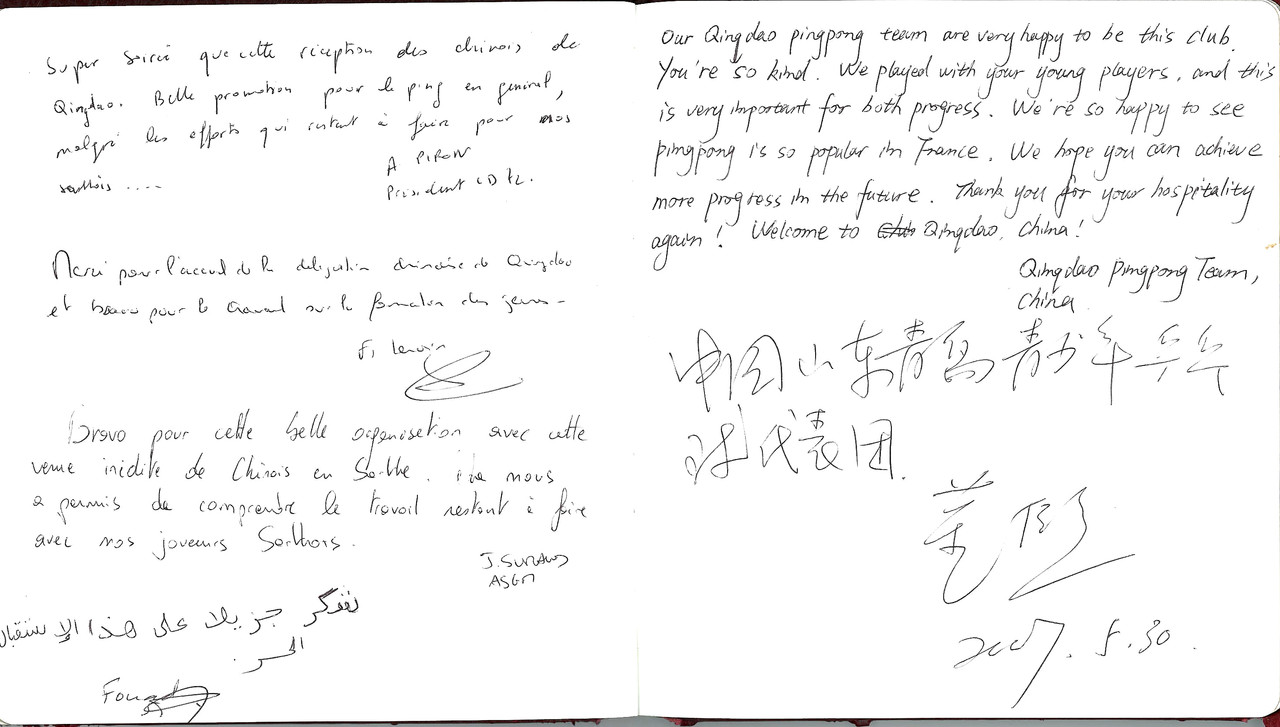 Super soirée que cette réception des chinois de
Qingdao. Belle promotion pour le ping en général,
malgré les efforts qui restent à faire pour nos
sarthois ....
A PIRON
Président CD 72.
Merci pour l'accueil de la délégation chinoise de Qingdao
et bravo pour le travail sur la formation des jeunes -
F, Lenoir
Bravo pour cette belle organisation avec cette
venue inédite de Chinois en Sarthe. nous
a permis de comprendre le travail restant à faire
avec nos joueurs Sarthois.
J.
نشكر جزيلا على هذا الإستقبال
الحـ
Our Qingdao pingpong team are very happy to be this club.
You're so kind. We played with your young players, and this
is very important for both progress. We're so happy to see
pingpong is so popular in France. We hope you can achieve
more progress in the future. Thank you for your hospitality
again! Welcome to Qingdao, China!
Qingdao Pingpong Team,
China
中国山东青岛青少年乒乓
球代表团.
2007.5.30.